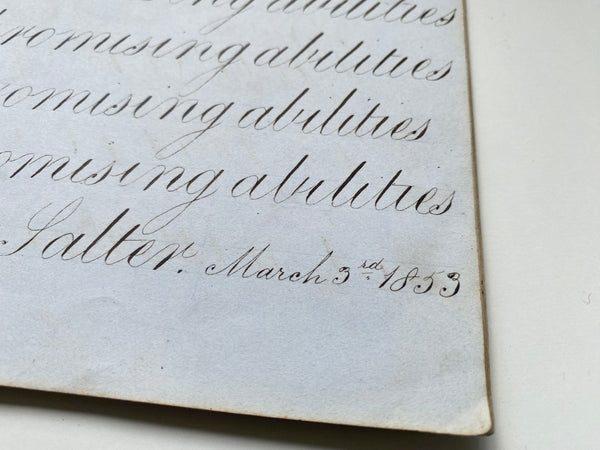 ing abilities
romising abilities
omising abilities
omising abilities
Salter. March 3rd. 1853